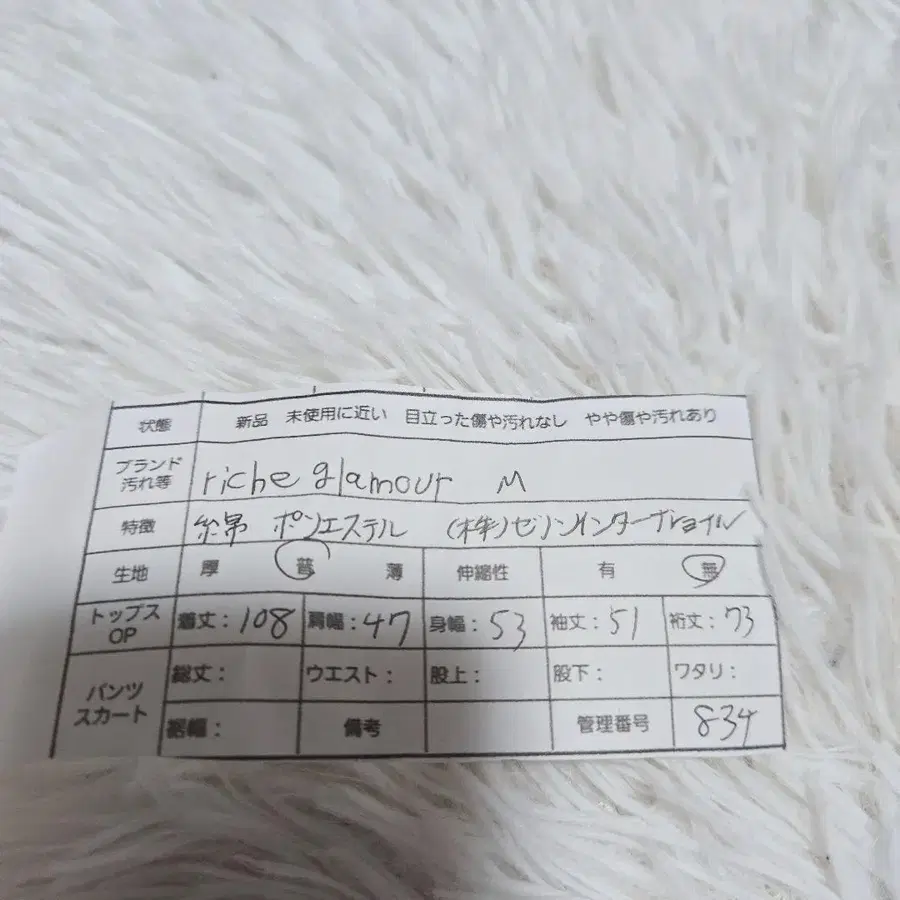 状態 新品 未使用に近い 目立った傷や汚れなし やや傷や汚れあり
ブランド
汚れ等 riche glamour M
特徴 綿 ポンエステル (株)ゼノンインターブレョイル
生地 厚 普 薄 伸縮性 有 無
トップス
OP 着丈:108 肩幅:47 身幅:53 袖丈:51 裄丈:73
パンツ
スカート 総丈: ウエスト: 股上: 股下: ワタリ:
裾幅: 備考 管理番号 834